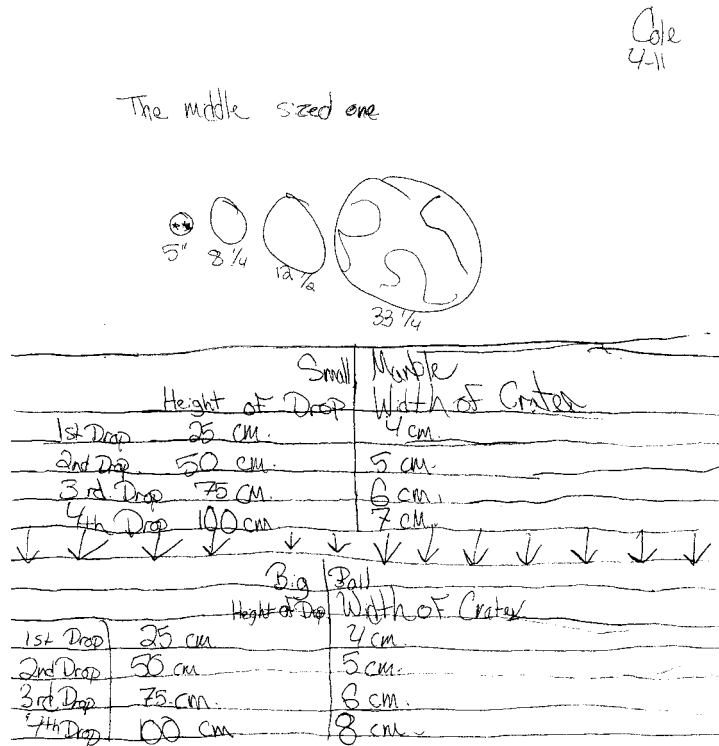 Cole
4-11
The middle sized one
5" 8 1/4 12 1/2 33 1/4
Small Marble
Height of Drop Width of Crater
1st Drop 25 cm. 4 cm.
2nd Drop. 50 cm. 5 cm.
3rd. Drop 75 cm. 6 cm.
4th Drop 100 cm 7 cm.
Big Ball
Height of Drop Width of Crater
1st Drop 25 cm. 4 cm.
2nd Drop 50 cm. 5 cm.
3rd Drop 75 cm. 6 cm.
4th Drop 100 cm 8 cm.